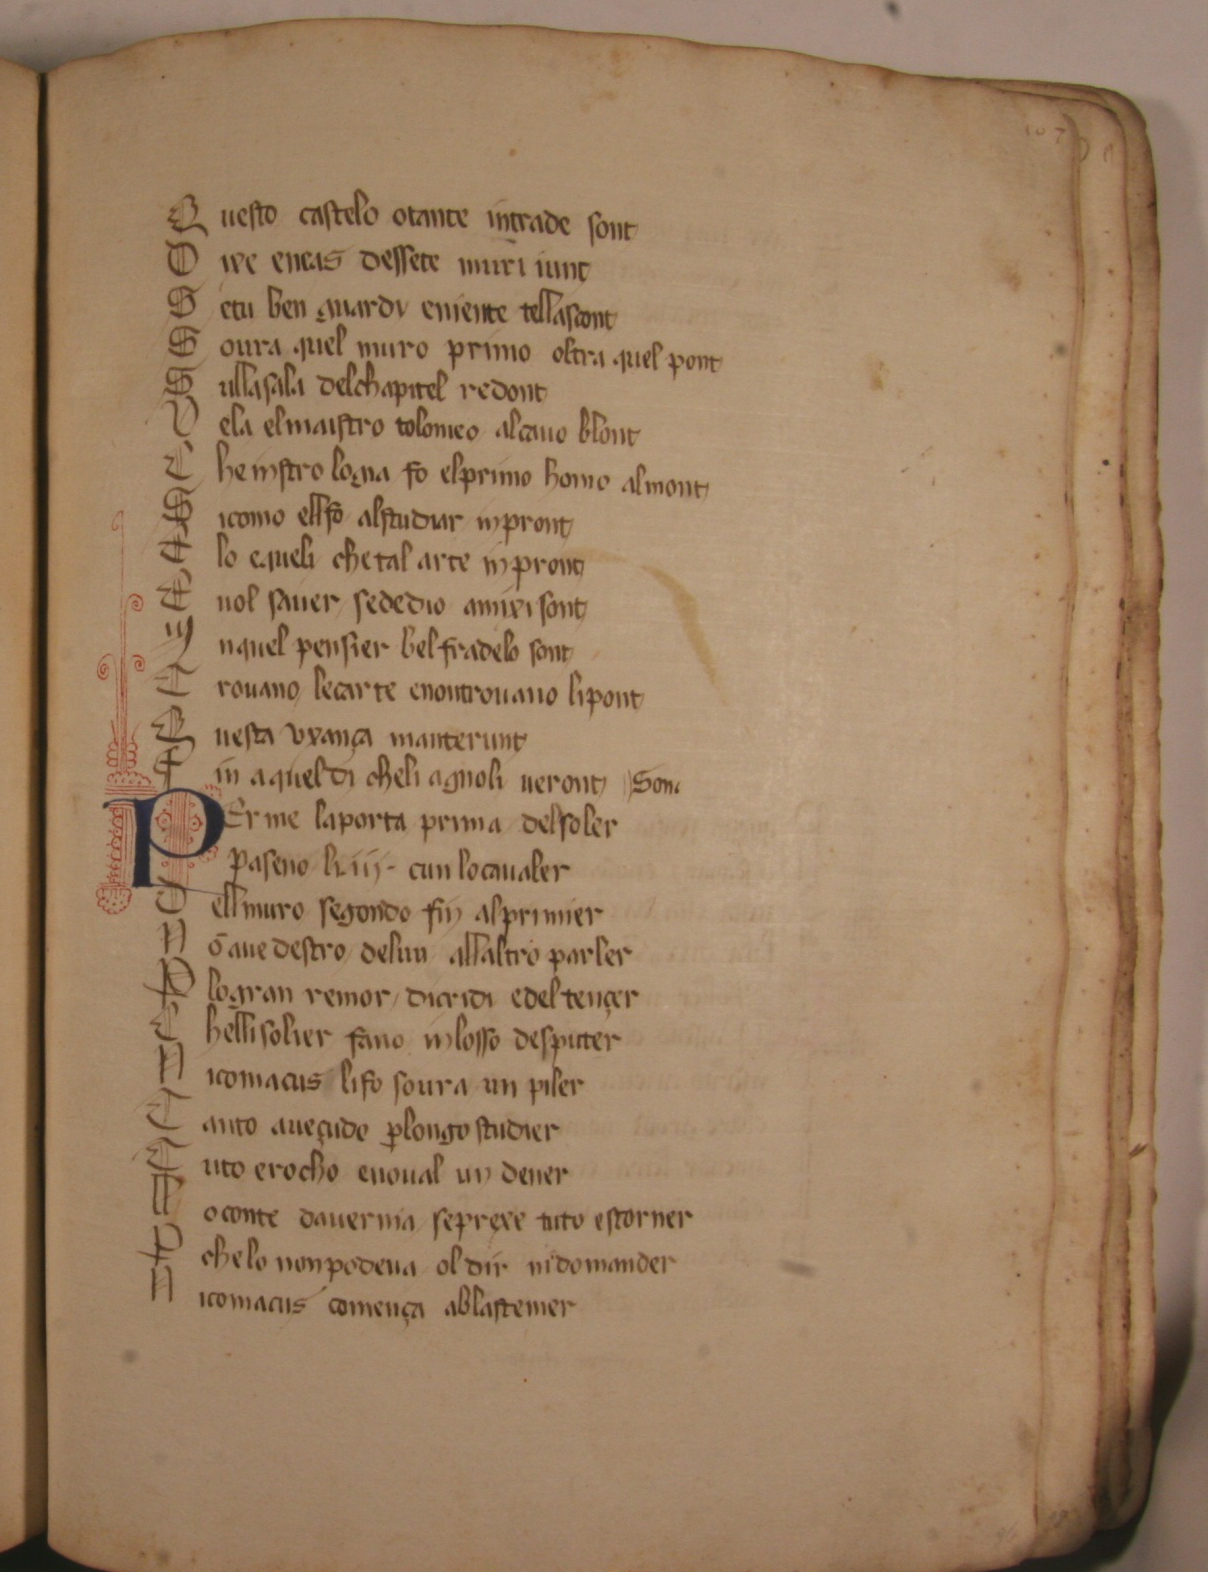 107
Questo castelo otante intrade sont
Dixe eneas dessete muri iunt
Setu ben guardi eniente tellascont
Soura quel muro primo oltra quel pont
Sullasala delchapitel redont
Vela elmaistro tolomeo alcauo blont
Che instrologia fo elprimo homo almont
Sicomo ellfo alstudiar inpront
Elo equeli chetal arte inpront
Euol sauer sededio amixi sont
Inquel pensier bel fradelo sont
Trouano lecarte enontrouano lipont
Questa vxança manterunt
Fin aqueldi cheli agnoli veront Son
PEr me laporta prima delsoler
Paseno liiij cun locaualer
Dell muro segondo fin alprimier
Nō aue destro delun allaltro parler
Plogran remor dicridi edel tençer
Chellisolier fano inlosso desputer
Nicomacus lifo soura un piler
Tanto aueçudo plongo studier
Tuto erocho enoual un dener
Lloconte dauernia seprexe tuto estorner
Pchelo nonpodeua oldir nidomander
Nicomacus comença ablastemer